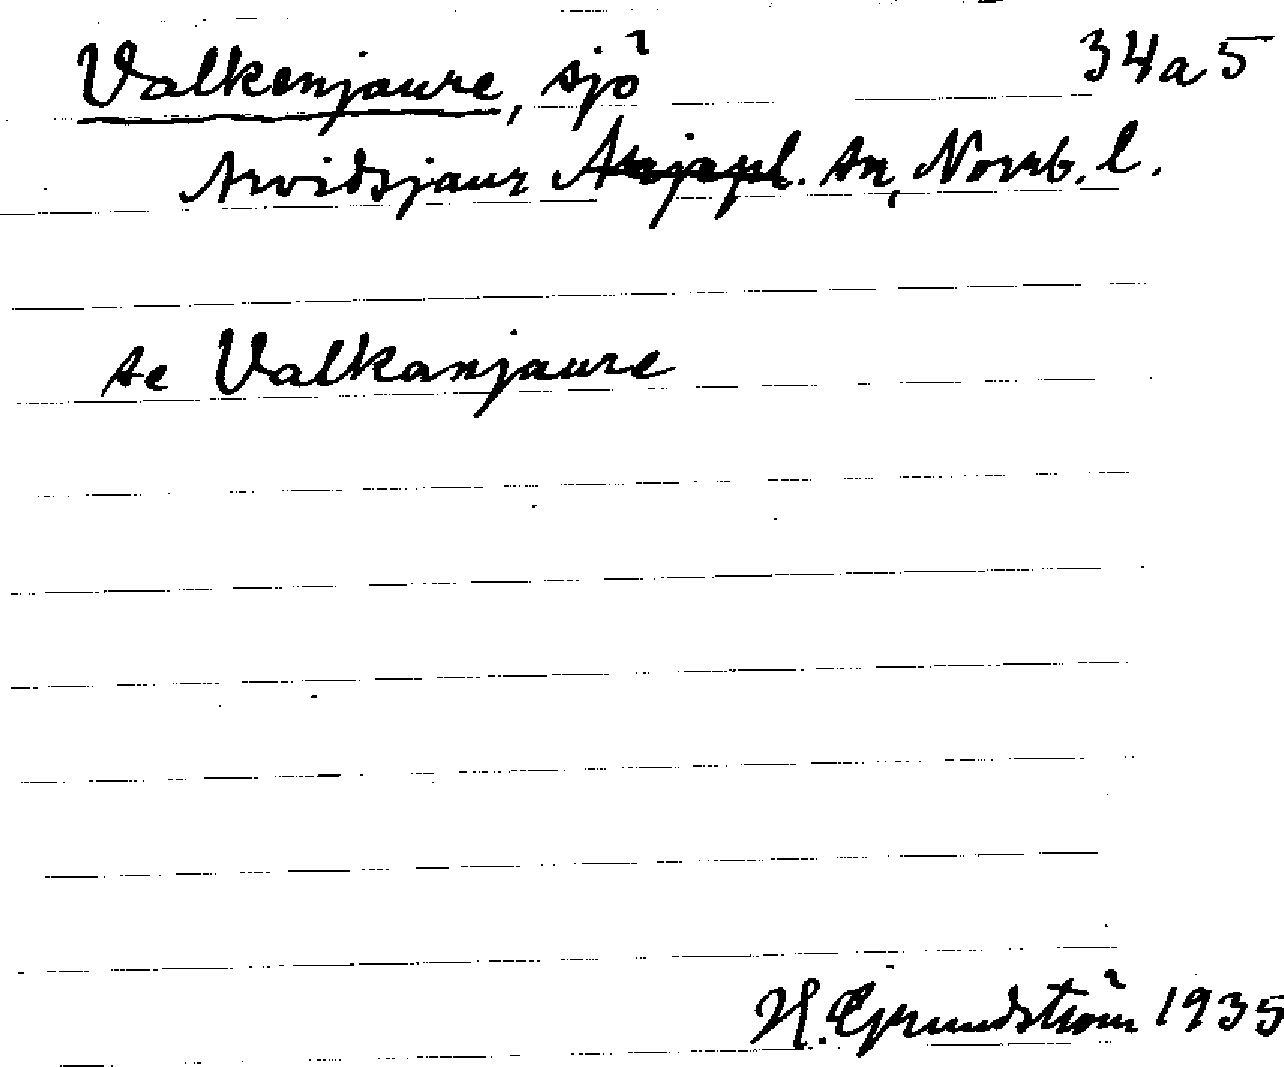 Valkenjaure, sjö 34a5
Arvidsjaur Arjepl. sn, Norrb. l.
se Valkanjaure
H. Grundström 1935